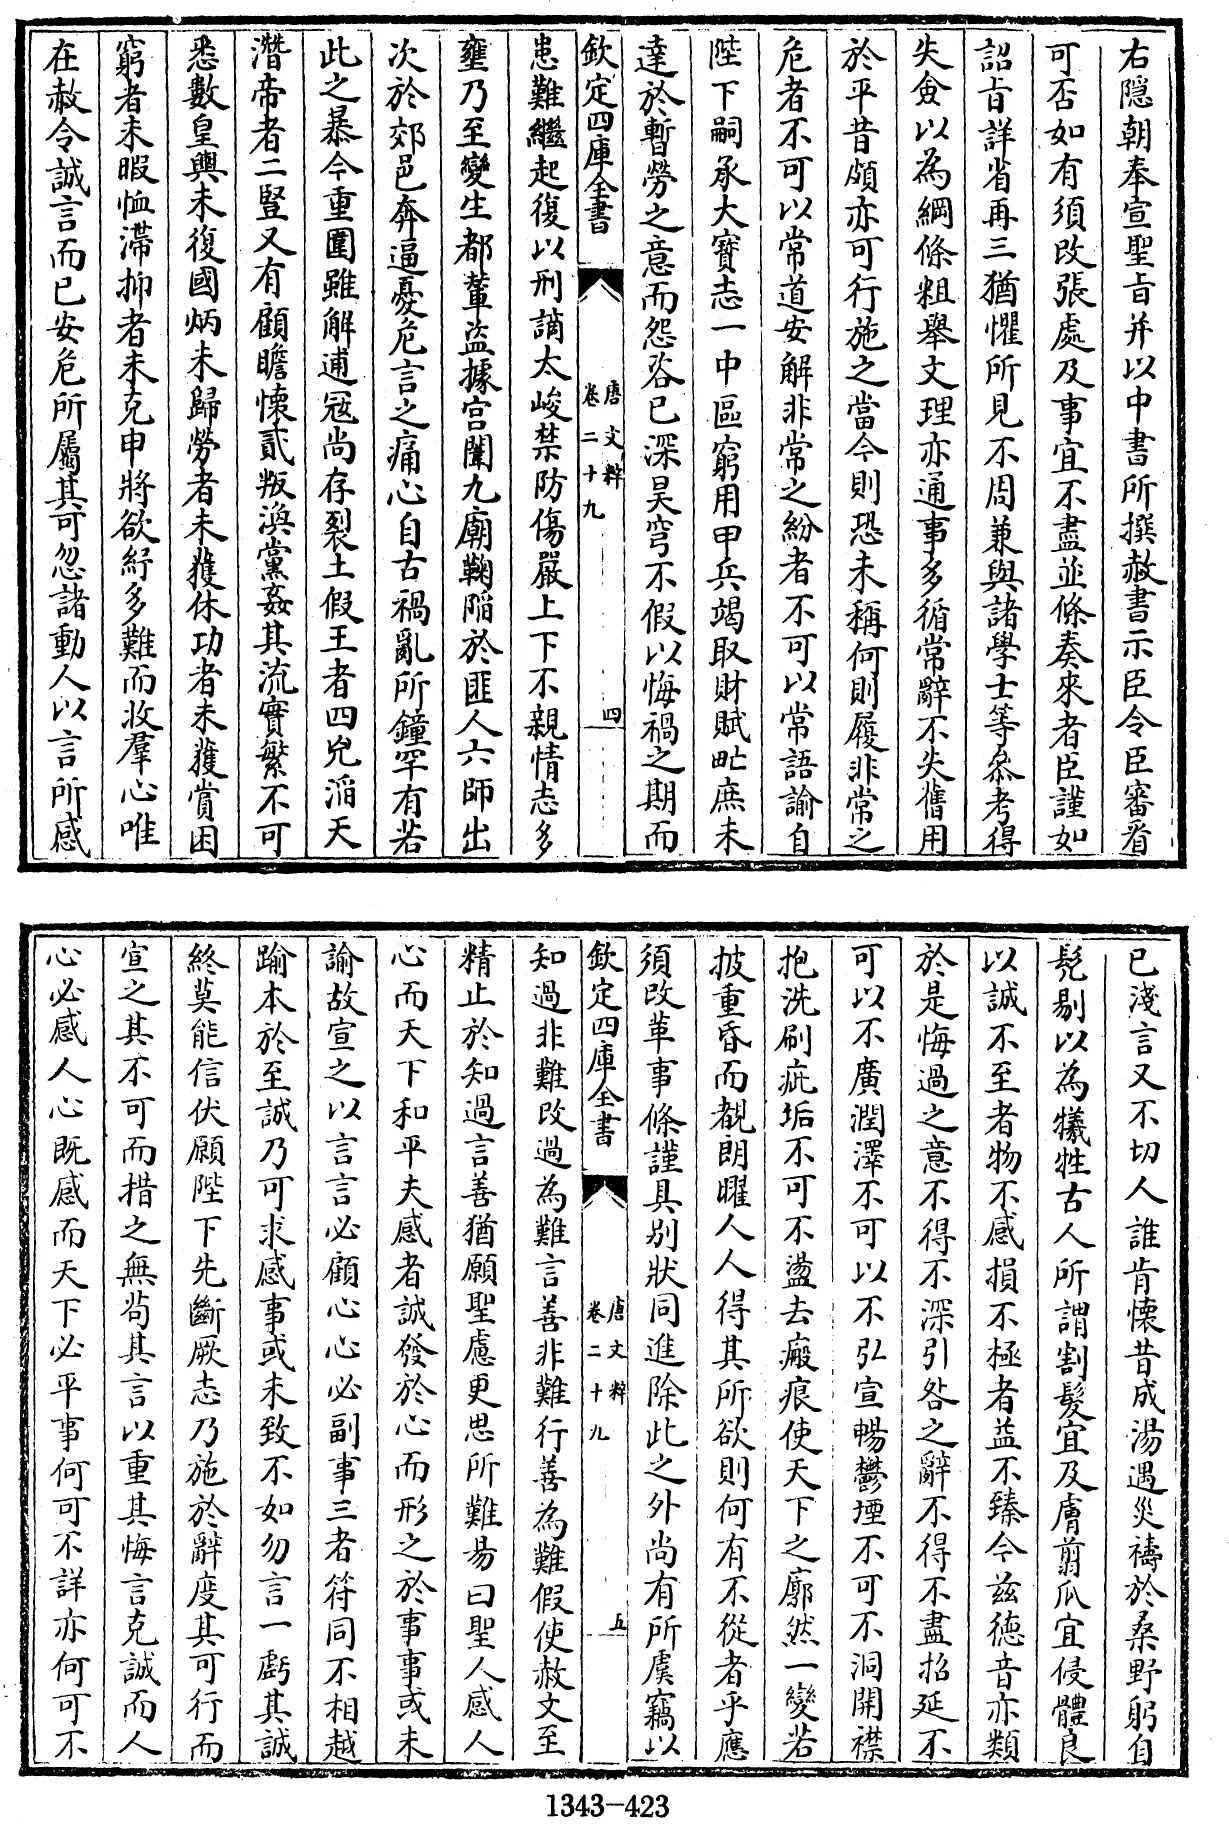 右隠朝奉宣聖旨并以中書所撰赦書示臣令臣審看
可否如有須改張處及事宜不盡並條奏來者臣謹如
詔旨詳省再三猶懼所見不周兼與諸學士等叅考得
失僉以為綱條粗舉文理亦通事多循常辭不失舊用
於平昔頗亦可行施之當今則恐未稱何則履非常之
危者不可以常道安解非常之紛者不可以常語諭自
陛下嗣承大寳志一中區窮用甲兵竭取財賦甿庶未
達於暫勞之意而怨咨已深昊穹不假以悔禍之期而
欽定四庫全書
唐文粹
卷二十九
四
患難繼起復以刑謫太峻禁防傷嚴上下不親情志多
壅乃至變生都輦盗據宫闈九廟鞠陷於匪人六師出
次於郊邑奔逼憂危言之痛心自古禍亂所鐘罕有若
此之暴今重圍雖解逋冦尚存裂土假王者四兇滔天
濳帝者二豎又有顧瞻懐貳叛渙黨姦其流實繁不可
悉數皇輿未復國炳未歸勞者未獲休功者未獲賞困
窮者未暇恤滯抑者未克申將欲紓多難而收羣心唯
在赦令誠言而已安危所屬其可忽諸動人以言所感
已淺言又不切人誰肯懐昔成湯遇災禱於桑野躬自
髠剔以為犧牲古人所謂割髮宜及膚翦爪宜侵體良
以誠不至者物不感損不極者益不臻今兹德音亦類
於是悔過之意不得不深引咎之辭不得不盡招延不
可以不廣潤澤不可以不弘宣暢鬱堙不可不洞開襟
抱洗刷疵垢不可不盪去瘢痕使天下之廓然一變若
披重昏而覩朗曜人人得其所欲則何有不從者乎應
須改革事條謹具别狀同進除此之外尚有所虞竊以
欽定四庫全書
唐文粹
卷二十九
五
知過非難改過為難言善非難行善為難假使赦文至
精止於知過言善猶願聖慮更思所難易曰聖人感人
心而天下和平夫感者誠發於心而形之於事事或未
諭故宣之以言言必顧心心必副事三者符同不相越
踰本於至誠乃可求感事或未致不如勿言一虧其誠
終莫能信伏願陛下先斷厥志乃施於辭度其可行而
宣之其不可而措之無茍其言以重其悔言克誠而人
心必感人心既感而天下必平事何可不詳亦何可不
1343-423